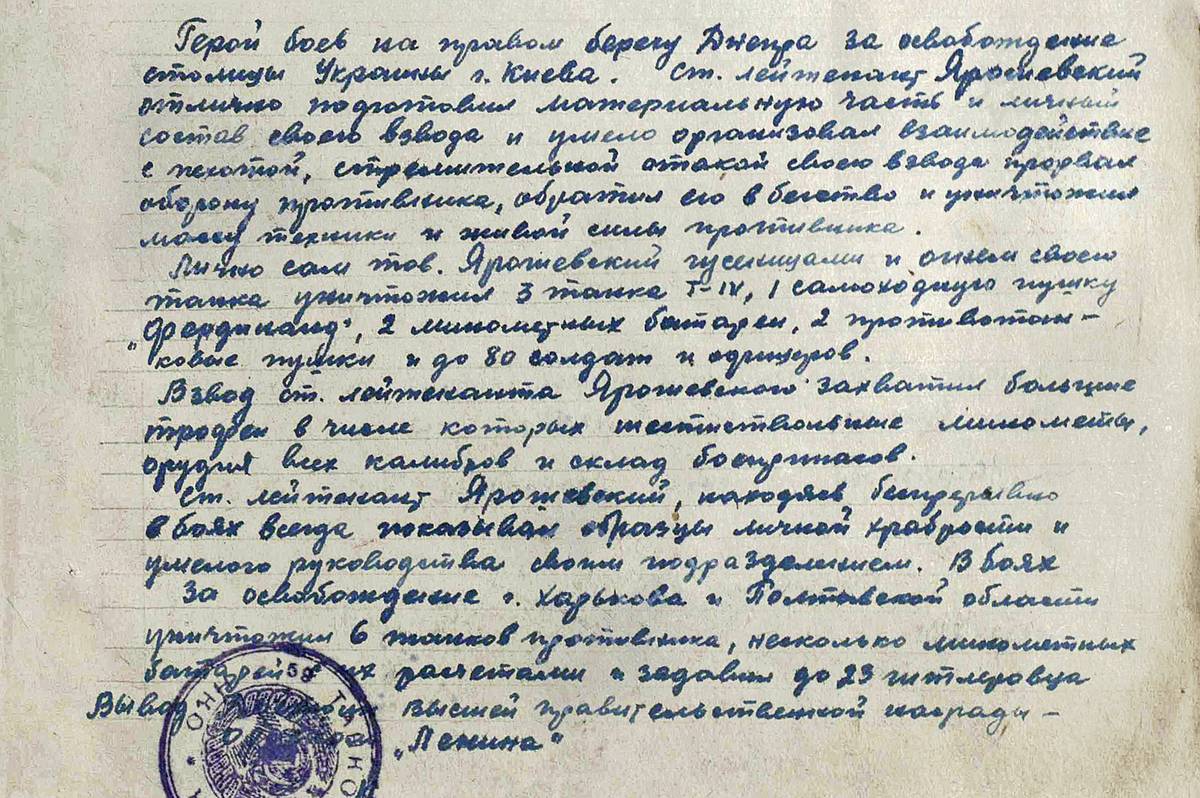 Герой боев на правом берегу Днепра за освобождение
столицы Украины г. Киева. Ст. лейтенант Ярошевский
отлично подготовил материальную часть и личный
состав своего взвода и умело организовал взаимодействие
с пехотой, стремительной атакой своего взвода прорвал
оборону противника, обратил его в бегство и уничтожил
массу техники и живой силы противника.
Лично сам тов. Ярошевский гусеницами и огнем своего
танка уничтожил 3 танка Т-IV, 1 самоходную пушку
„Фердинанд", 2 минометных батареи, 2 противотан-
ковые пушки и до 80 солдат и офицеров.
Взвод ст. лейтенанта Ярошевского захватил большие
трофеи в числе которых шестиствольные минометы,
орудия всех калибров и склад боеприпасов.
Ст. лейтенант Ярошевский, находясь беспрерывно
в боях всегда показывал образцы личной храбрости и
умелого руководства своим подразделением. В боях
за освобождение г. Харькова и Полтавской области
уничтожил 6 танков противника, несколько минометных
батарей их расчетами и задавил до 23 гитлеровца
Вывод высшей правительственной награды -
„Ленина"
59 ТАНКО